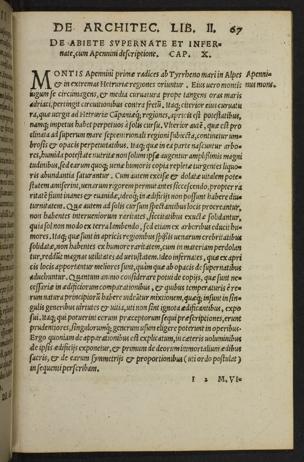 DE ARCHITEC. LIB. II. 67
DE ABIETE SVPERNATE ET INFER-
nate, cum Apennini descriptione. CAP. X.
MONTIS Apennini primæ radices ab Tyrrheno mari in Alpes
& in extremas Hetruriæ regiones oriuntur. Eius uero montis
iugum se circumagens, & media curuatura prope tangens oras maris
adriaci, pertingit circuitionibus contra fretũ. Itaq; citerior eius curuatu
ra, quæ uergit ad Hetruriæ Cãpaniæq; regiones, apricis est potestatibus,
namq; impetus habet perpetuos à solis cursu. Vlterior autẽ, quæ est pro
clinata ad superum mare septentrionali regioni subiecta, continetur um-
brosis & opacis perpetuitatibus. Itaq; quæ in ea parte nascuntur arbo-
res, humida potestate nutritæ non solum ipsæ augentur amplissimis magni
tudinibus, sed earum quoq; uenæ humoris copia repletæ turgentes liquo-
ris abundantia saturantur. Cum autem excisæ & dolatæ uitalem pote-
statem amiserint, uenarum rigorem permutantes siccescendo, propter ra
ritatẽ fiunt inanes & euanidæ, ideoq; in ædificijs non possunt habere diu
turnitatem. Quæ autem ad solis cursum spectantibus locis procreantur,
non habentes interueniorum raritates, siccitatibus exuctæ solidantur,
quia sol non modo ex terra lambendo, sed etiam ex arboribus educit hu-
mores. Itaq; quæ sunt in apricis regionibus spissis uenarum crebritatibus
solidatæ, non habentes ex humore raritatem, cum in materiam perdolan
tur, reddũt magnas utilitates ad uetustatem. ideo infernates, quæ ex apri
cis locis apportantur meliores sunt, quàm quæ ab opacis de supernatibus
aduehuntur. Quantum animo considerare potui de copijs, quæ sunt ne-
cessariæ in ædificiorum comparationibus, & quibus temperaturis è re-
rum natura principiorũ habere uideãtur mixtionem, quæq; insunt in sin-
gulis generibus uirtutes & uitia, uti non sint ignota ædificantibus, expo
sui. Itaq; qui poterint eorum præceptorum sequi præscriptiones, erunt
prudentiores, singulorumq; generum usum eligere poterunt in operibus.
Ergo quoniam de apparationibus est explicatum, in cæteris uoluminibus
de ipsis ædificijs exponetur, & primum de deorum immortalium ædibus
sacris, & de earum symmetrijs & proportionibus (uti ordo postulat)
in sequenti perscribam.
Apenni-
nus mons.
I 2 M. VI-